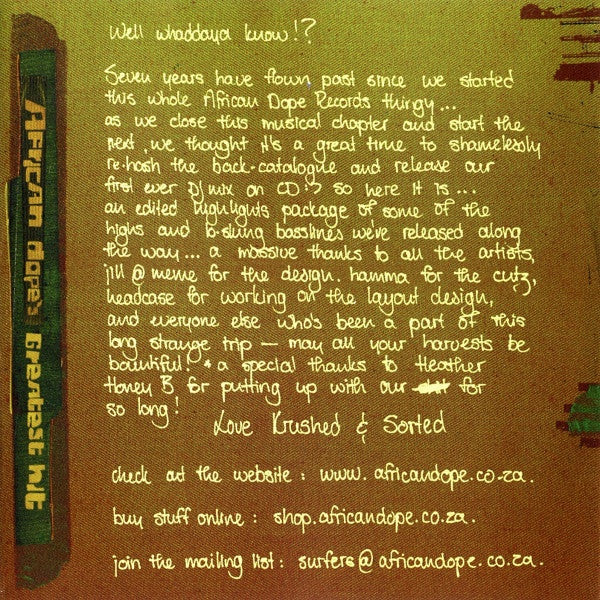 African Dope's Greatest hit
Well whaddaya know!?
Seven years have flown past since we started
this whole African Dope Records thingy...
as we close this musical chapter and start the
next, we thought it's a great time to shamelessly
re-hash the back-catalogue and release our
first ever DJ mix on CD :) so here it is...
an edited highlights package of some of the
highs and b-slung basslines we've released along
the way... a massive thanks to all the artists,
jill @ meme for the design. hamma for the cutz,
headcase for working on the layout design,
and everyone else who's been a part of this
long strange trip – may all your harvests be
bountiful! & a special thanks to Heather
Honey B for putting up with our for
so long!
Love Krushed & Sorted
check out the website: www.africandope.co.za.
buy stuff online: shop.africandope.co.za.
join the mailing list: surfers@africandope.co.za.